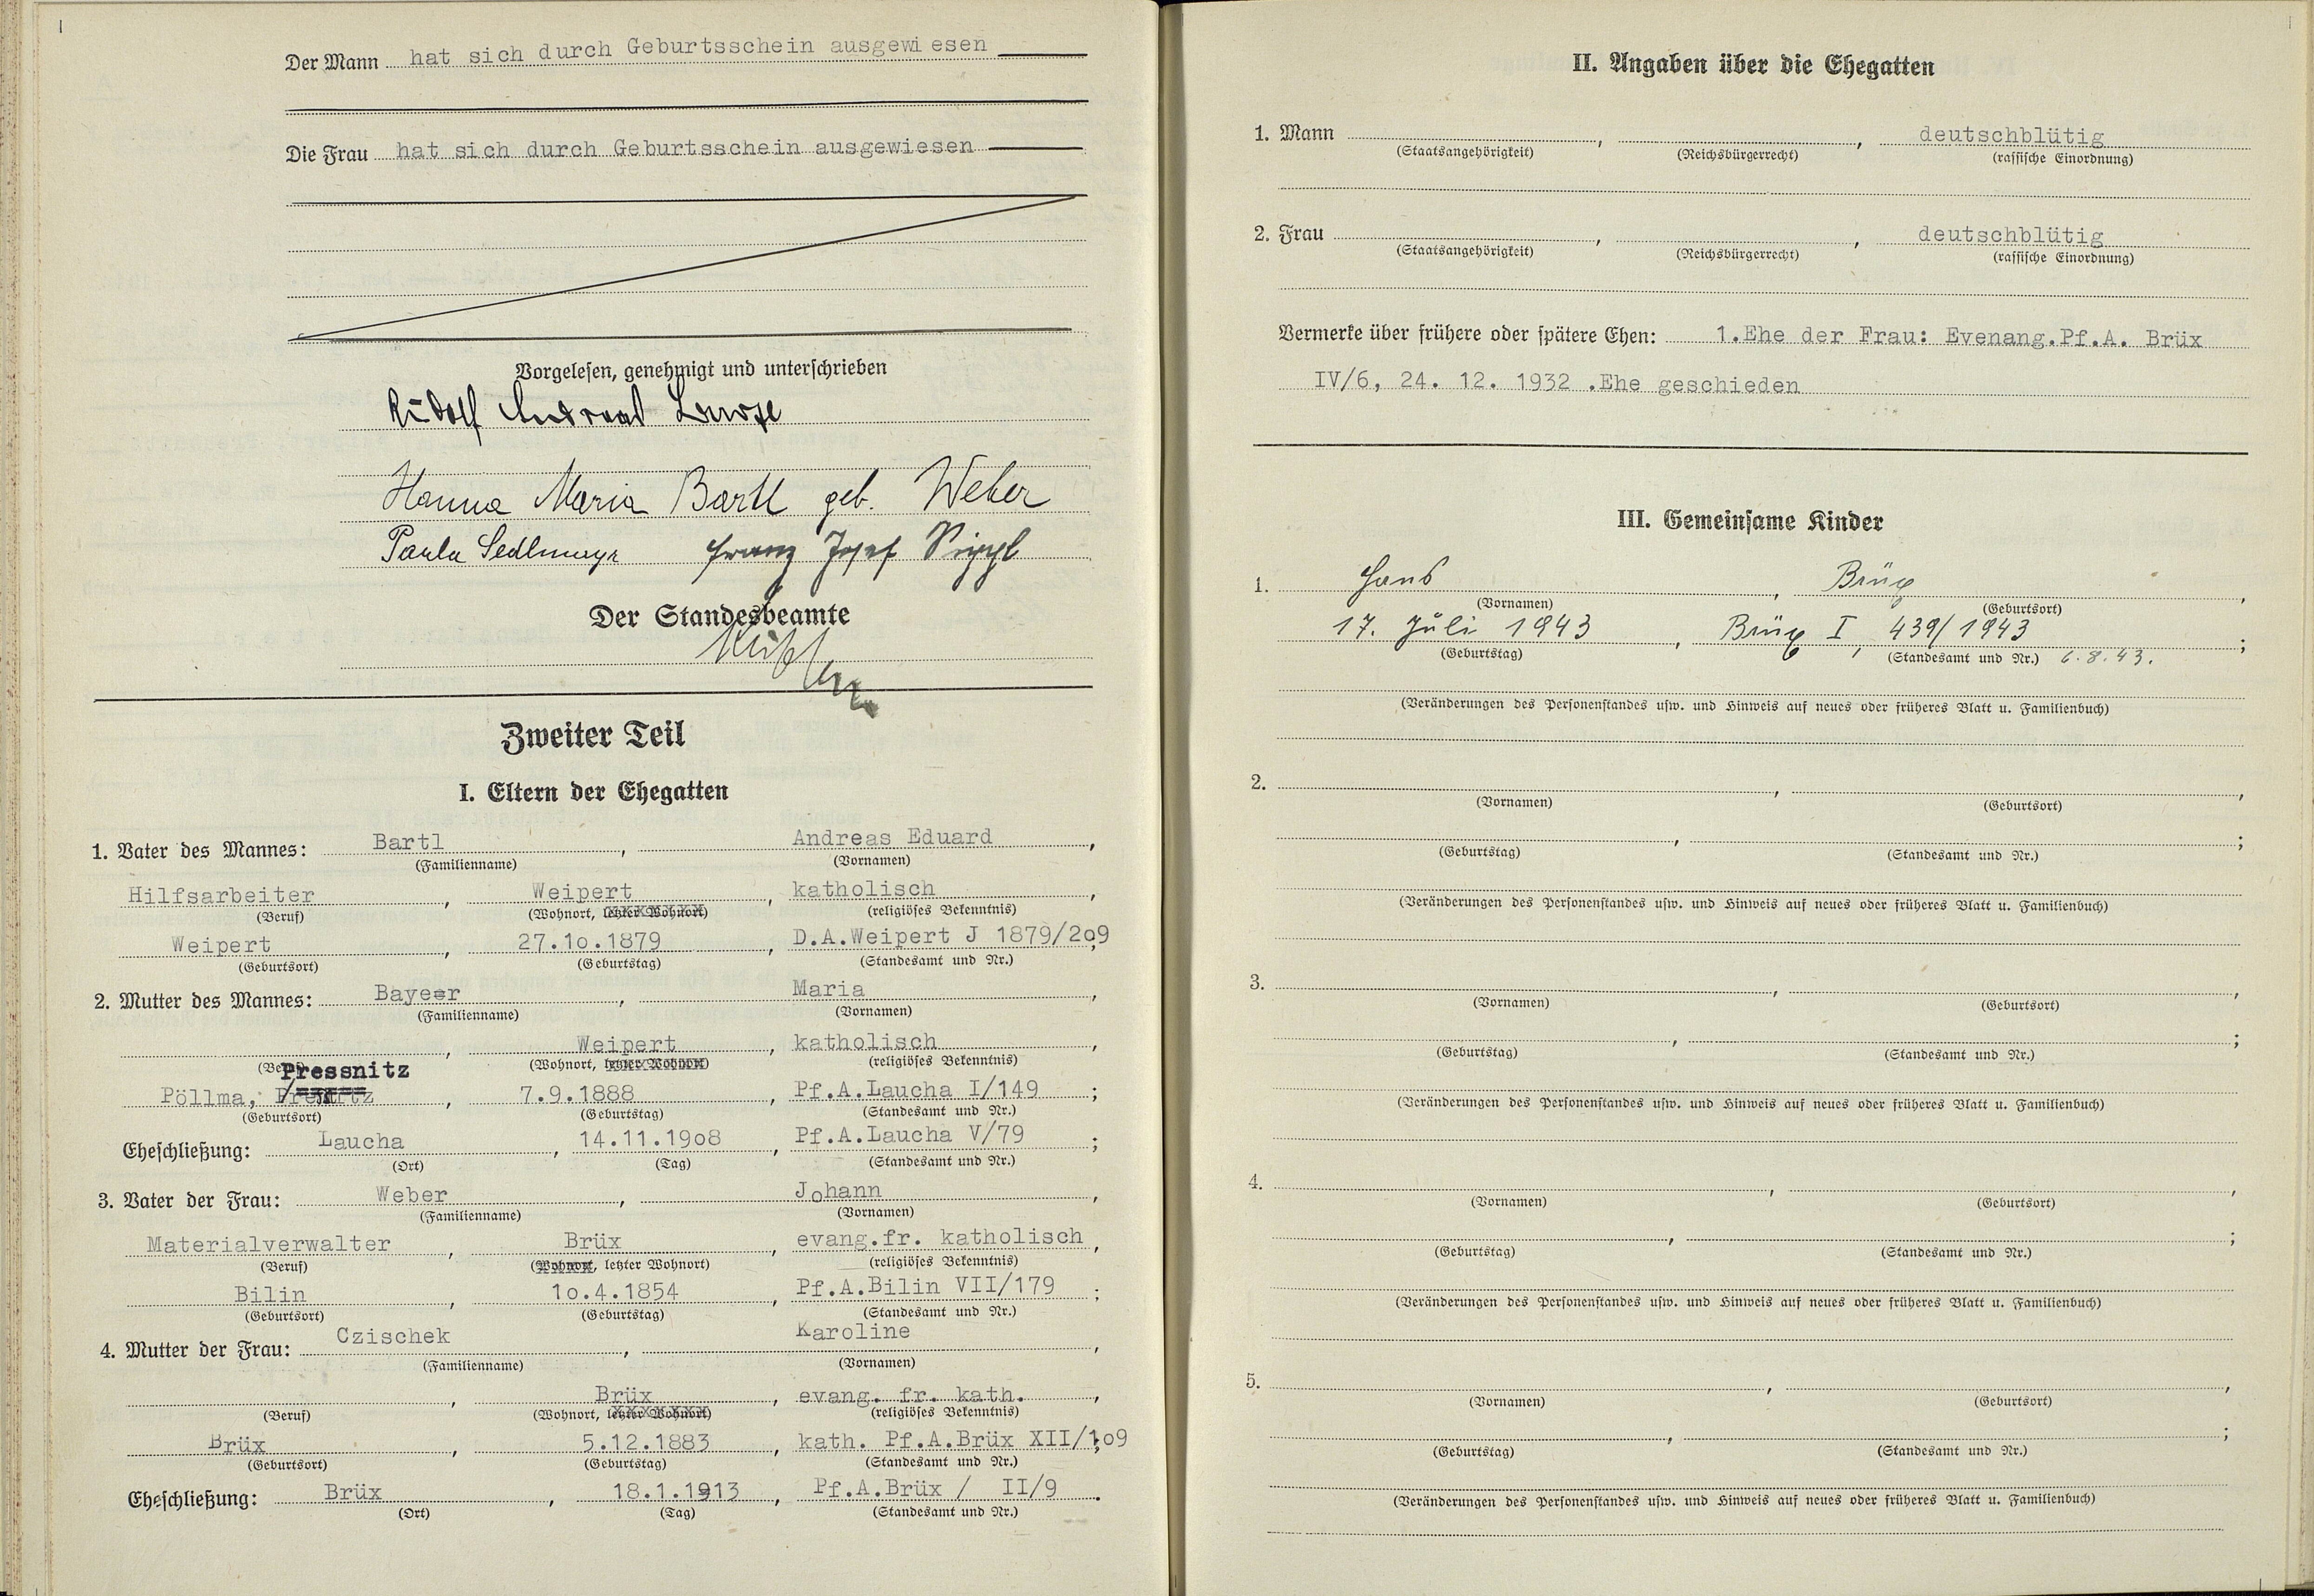 Der Mann hat sich durch Geburtsschein ausgewiesen
Die Frau hat sich durch Geburtsschein ausgewiesen
Vorgelesen, genehmigt und unterschrieben
Rudolf Andreas Bartl
Hanna Maria Bartl geb. Weber
Paula Sedlmayr Franz Josef Sippl
Der Standesbeamte
Zweiter Teil
I. Eltern der Ehegatten
1. Vater des Mannes: Bartl, Andreas Eduard,
(Familienname) (Vornamen)
Hilfsarbeiter, Weipert, katholisch,
(Beruf) (Wohnort, letzter Wohnort) (religiöses Bekenntnis)
Weipert, 27.10.1879, D.A.Weipert J 1879/209;
(Geburtsort) (Geburtstag) (Standesamt und Nr.)
2. Mutter des Mannes: Bayer, Maria,
(Familienname) (Vornamen)
, Weipert, katholisch,
(Beruf) (Wohnort, letzter Wohnort) (religiöses Bekenntnis)
Pressnitz
Pöllma, Pressnitz, 7.9.1888, Pf.A.Laucha I/149;
(Geburtsort) (Geburtstag) (Standesamt und Nr.)
Eheschließung: Laucha, 14.11.1908, Pf.A.Laucha V/79;
(Ort) (Tag) (Standesamt und Nr.)
3. Vater der Frau: Weber, Johann,
(Familienname) (Vornamen)
Materialverwalter, Brüx, evang.fr. katholisch,
(Beruf) (Wohnort, letzter Wohnort) (religiöses Bekenntnis)
Bilin, 10.4.1854, Pf.A.Bilin VII/179;
(Geburtsort) (Geburtstag) (Standesamt und Nr.)
4. Mutter der Frau: Czischek, Karoline,
(Familienname) (Vornamen)
, Brüx, evang. fr. kath.,
(Beruf) (Wohnort, letzter Wohnort) (religiöses Bekenntnis)
Brüx, 5.12.1883, kath. Pf.A.Brüx XII/109;
(Geburtsort) (Geburtstag) (Standesamt und Nr.)
Eheschließung: Brüx, 18.1.1913, Pf.A.Brüx / II/9.
(Ort) (Tag) (Standesamt und Nr.)
II. Angaben über die Ehegatten
1. Mann , , deutschblütig
(Staatsangehörigkeit) (Reichsbürgerrecht) (rassische Einordnung)
2. Frau , , deutschblütig
(Staatsangehörigkeit) (Reichsbürgerrecht) (rassische Einordnung)
Vermerke über frühere oder spätere Ehen: 1.Ehe der Frau: Evenang.Pf.A. Brüx
IV/6, 24. 12. 1932 .Ehe geschieden
III. Gemeinsame Kinder
1. Hans, Brüx,
(Vornamen) (Geburtsort)
17. Juli 1943, Brüx I, 439/1943;
(Geburtstag) (Standesamt und Nr.) 6.8.43.
(Veränderungen des Personenstandes usw. und Hinweis auf neues oder früheres Blatt u. Familienbuch)
2. , ,
(Vornamen) (Geburtsort)
, ;
(Geburtstag) (Standesamt und Nr.)
(Veränderungen des Personenstandes usw. und Hinweis auf neues oder früheres Blatt u. Familienbuch)
3. , ,
(Vornamen) (Geburtsort)
, ;
(Geburtstag) (Standesamt und Nr.)
(Veränderungen des Personenstandes usw. und Hinweis auf neues oder früheres Blatt u. Familienbuch)
4. , ,
(Vornamen) (Geburtsort)
, ;
(Geburtstag) (Standesamt und Nr.)
(Veränderungen des Personenstandes usw. und Hinweis auf neues oder früheres Blatt u. Familienbuch)
5. , ,
(Vornamen) (Geburtsort)
, ;
(Geburtstag) (Standesamt und Nr.)
(Veränderungen des Personenstandes usw. und Hinweis auf neues oder früheres Blatt u. Familienbuch)